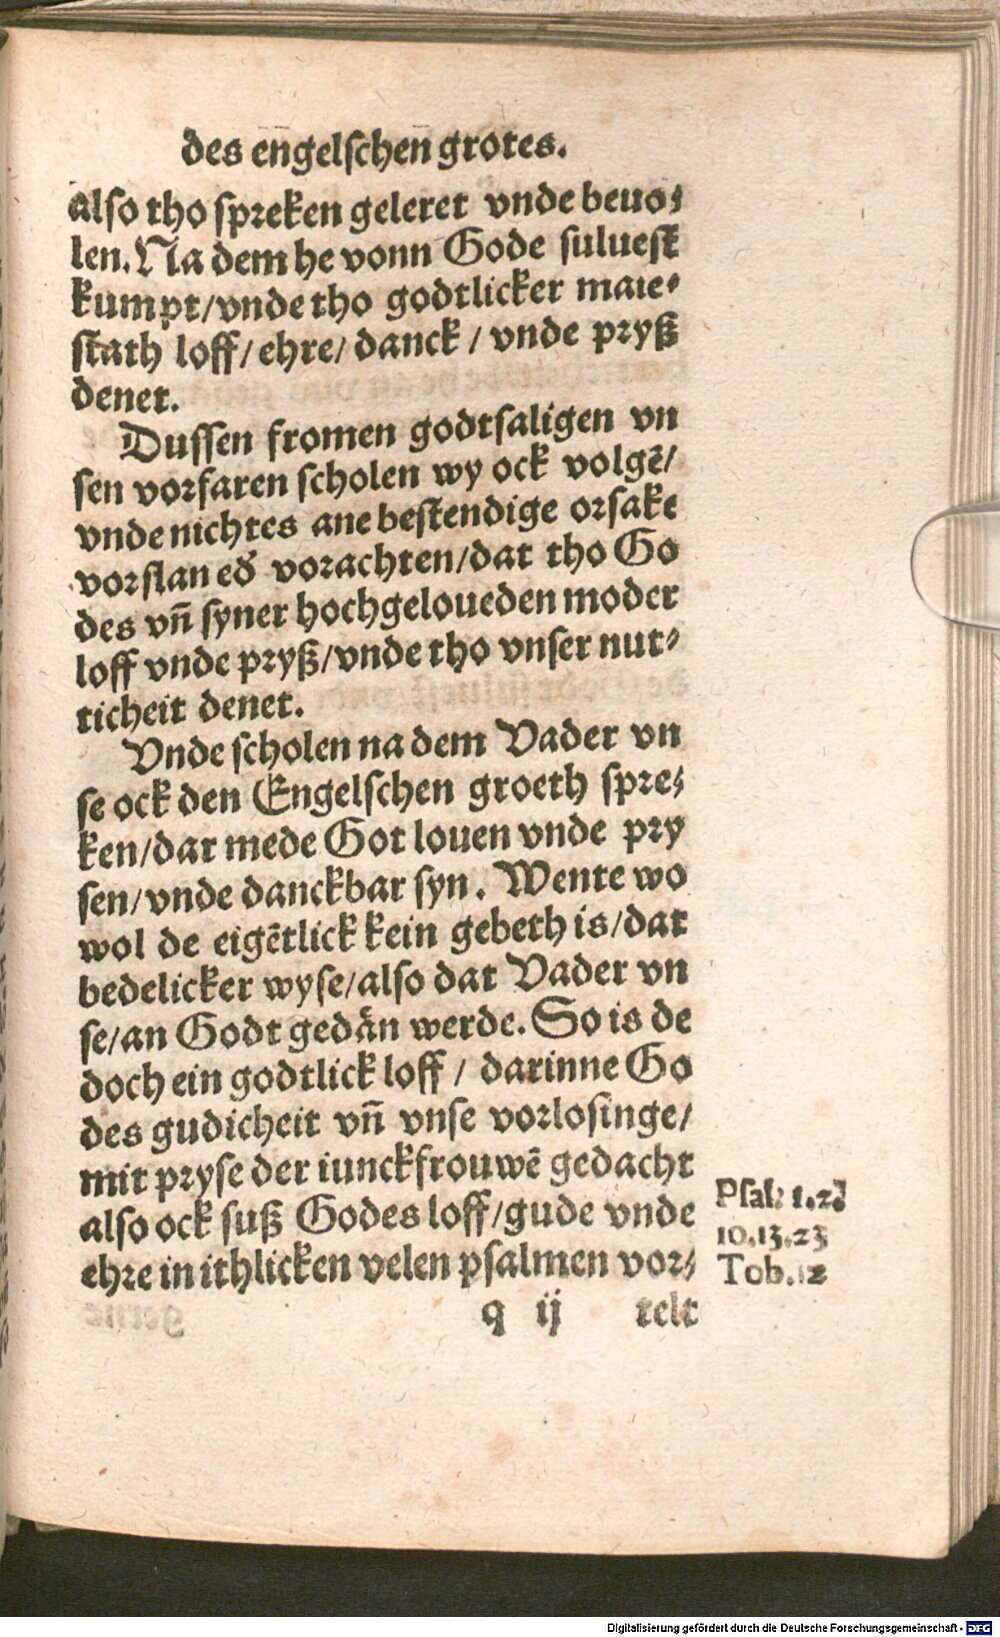 des engelschen grotes.
also tho spreken geleret vnde beuo⸗
len. Na dem he vonn Gode suluest
kumpt/vnde tho godtlicker maie⸗
stath loff/ehre/danck/vnde pryß
denet.
Dussen fromen godtsaligen vn
sen vorfaren scholen wy ock volgē/
vnde nichtes ane bestendige orsake
vorslan eð vorachten/dat tho Go
des vñ syner hochgeloueden moder
loff vnde pryß/vnde tho vnser nut⸗
ticheit denet.
Vnde scholen na dem Vader vn
se ock den Engelschen groeth spre⸗
ken/dar mede Got louen vnde pry
sen/vnde danckbar syn. Wente wo
wol de eigētlick kein gebeth is/dat
bedelicker wyse/also dat Vader vn
se/an Godt gedan werde. So is de
doch ein godtlick loff/darinne Go
des gudicheit vñ vnse vorlosinge/
mit pryse der iunckfrouwē gedacht
also ock suß Godes loff/gude vnde
Psal. 1.2.
10.13.23
Tob.12
ehre in ithlicken velen psalmen vor⸗
q ij telt
Digitalisierung gefördert durch die Deutsche Forschungsgemeinschaft - DFG